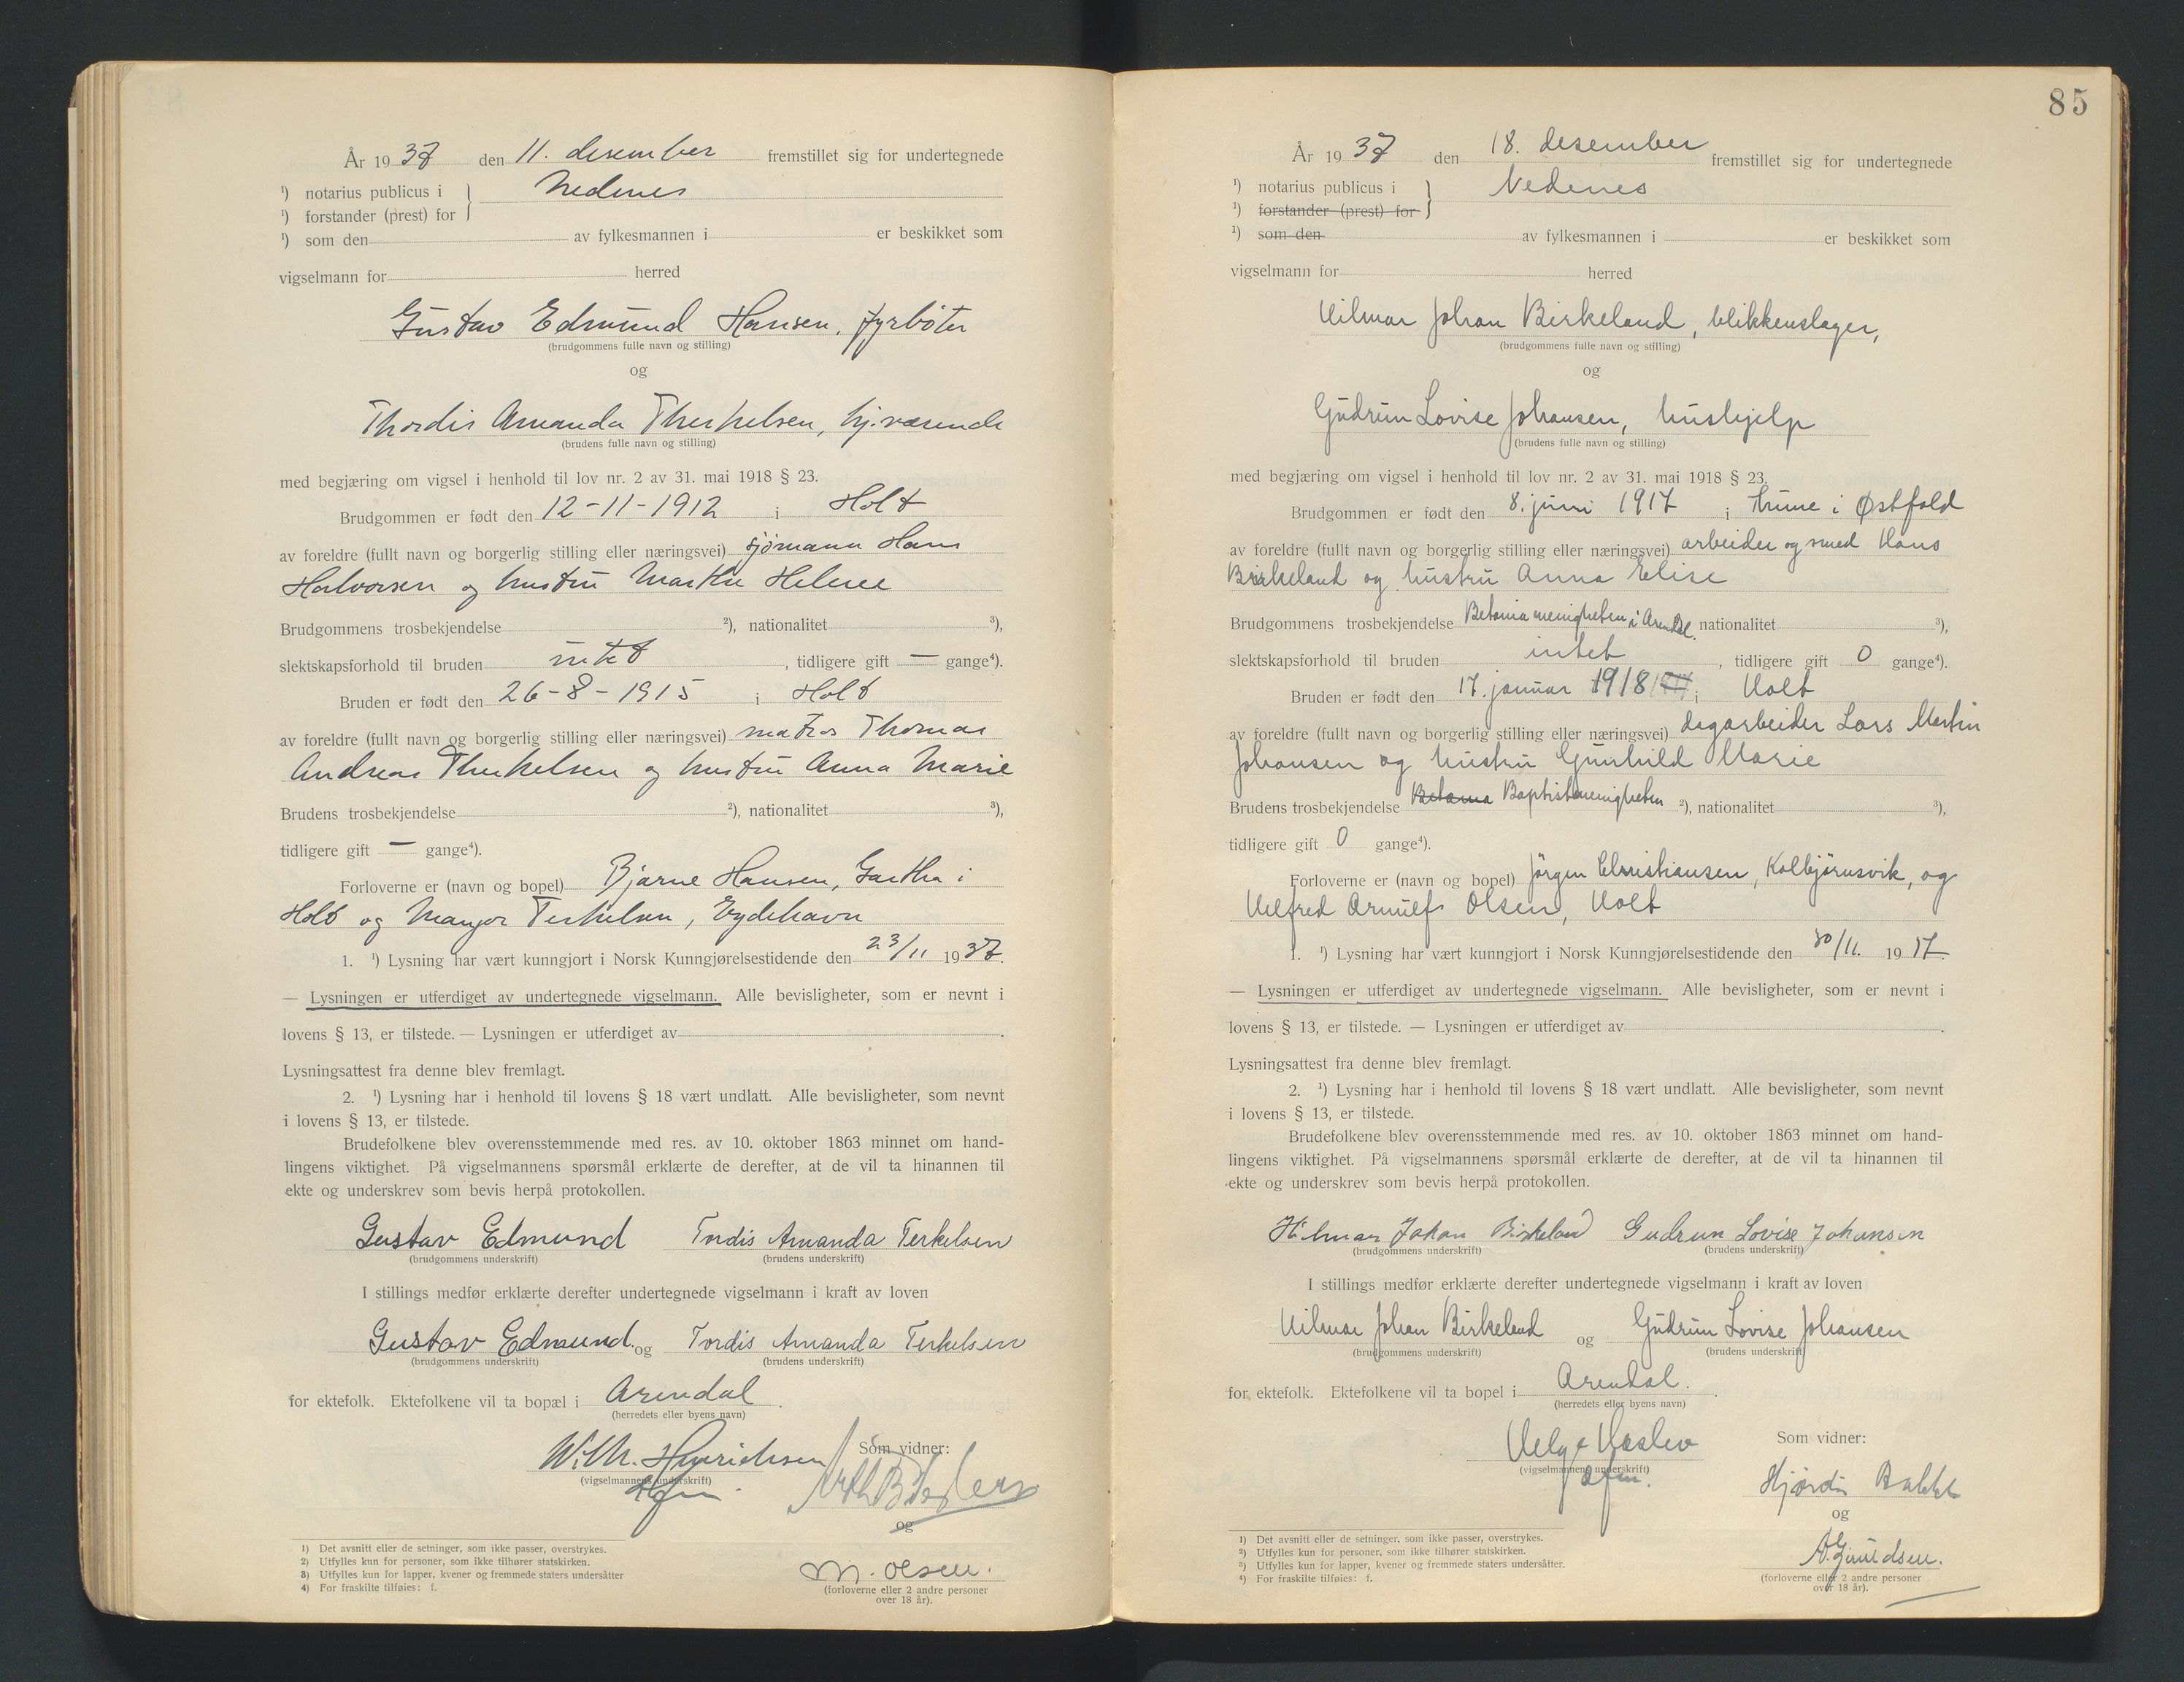 År 1937 den 11. desember fremstillet sig for undertegnede
¹) notarius publicus i } Nedenes
¹) forstander (prest) for
¹) som den av fylkesmannen i er beskikket som
vigselmann for herred
Gustav Edmund Hansen, fyrbøter
(brudgommens fulle navn og stilling)
og
Thordis Amanda Therkelsen, hj.værende
(brudens fulle navn og stilling)
med begjæring om vigsel i henhold til lov nr. 2 av 31. mai 1918 § 23.
Brudgommen er født den 12-11-1912 i Holt
av foreldre (fullt navn og borgerlig stilling eller næringsvei) sjømann Hans
Halvorsen og hustru Marthe Helene
Brudgommens trosbekjendelse ²), nationalitet ³),
slektskapsforhold til bruden intet , tidligere gift — gange⁴).
Bruden er født den 26-8-1915 i Holt
av foreldre (fullt navn og borgerlig stilling eller næringsvei) matros Thomas
Andreas Therkelsen og hustru Anna Marie
Brudens trosbekjendelse ²), nationalitet ³),
tidligere gift — gange⁴).
Forloverne er (navn og bopel) Bjarne Hansen, Gartha i
Holt og Terkelsen, Eydehavn
1. ¹) Lysning har vært kunngjort i Norsk Kunngjørelsestidende den 23/11 1937.
— Lysningen er utferdiget av undertegnede vigselmann. Alle bevisligheter, som er nevnt i
lovens § 13, er tilstede. — Lysningen er utferdiget av .
Lysningsattest fra denne blev fremlagt.
2. ¹) Lysning har i henhold til lovens § 18 vært undlatt. Alle bevisligheter, som nevnt
i lovens § 13, er tilstede.
Brudefolkene blev overensstemmende med res. av 10. oktober 1863 minnet om hand-
lingens viktighet. På vigselmannens spørsmål erklærte de derefter, at de vil ta hinannen til
ekte og underskrev som bevis herpå protokollen.
Gustav Edmund Tordis Amanda Terkelsen
(brudgommens underskrift) (brudens underskrift)
I stillings medfør erklærte derefter undertegnede vigselmann i kraft av loven
Gustav Edmund og Tordis Amanda Terkelsen
(brudgommens underskrift) (brudens underskrift)
for ektefolk. Ektefolkene vil ta bopæl i Arendal .
(herredets eller byens navn)
W. Th. Henrichsen Som vidner:
(vigselmannens underskrift)
og
M. Olsen.
(forloverne eller 2 andre personer
over 18 år).
1) Det avsnitt eller de setninger, som ikke passer, overstrykes.
2) Utfylles kun for personer, som ikke tilhører statskirken.
3) Utfylles kun for lapper, kvener og fremmede staters undersåtter
4) For fraskilte tilføies: f.
85
År 1937 den 18. desember fremstillet sig for undertegnede
¹) notarius publicus i } Nedenes
¹) forstander (prest) for
¹) som den av fylkesmannen i er beskikket som
vigselmann for herred
Hilmar Johan Birkeland, blikkenslager,
(brudgommens fulle navn og stilling)
og
Gudrun Lovise Johansen, hushjelp
(brudens fulle navn og stilling)
med begjæring om vigsel i henhold til lov nr. 2 av 31. mai 1918 § 23.
Brudgommen er født den 8. juni 1917 i Tune i Østfold
av foreldre (fullt navn og borgerlig stilling eller næringsvei) arbeider og smed Hans
Birkeland og hustru Anna Elise
Brudgommens trosbekjendelse Betania menigheten i Arendal. nationalitet ³),
slektskapsforhold til bruden intet , tidligere gift 0 gange⁴).
Bruden er født den 17. januar 1918 i Holt
av foreldre (fullt navn og borgerlig stilling eller næringsvei) dagarbeider Lars Martin
Johansen og hustru Gunhild Marie
Brudens trosbekjendelse Betania Baptistmenigheten ²), nationalitet ³),
tidligere gift 0 gange⁴).
Forloverne er (navn og bopel) Jörgen Christiansen, Kolbjörnsvik, og
Helfred Arnulf Olsen, Holt
1. ¹) Lysning har vært kunngjort i Norsk Kunngjørelsestidende den 30/11. 1937.
— Lysningen er utferdiget av undertegnede vigselmann. Alle bevisligheter, som er nevnt i
lovens § 13, er tilstede. — Lysningen er utferdiget av .
Lysningsattest fra denne blev fremlagt.
2. ¹) Lysning har i henhold til lovens § 18 vært undlatt. Alle bevisligheter, som nevnt
i lovens § 13, er tilstede.
Brudefolkene blev overensstemmende med res. av 10. oktober 1863 minnet om hand-
lingens viktighet. På vigselmannens spørsmål erklærte de derefter, at de vil ta hinannen til
ekte og underskrev som bevis herpå protokollen.
Hilmar Johan Birkeland Gudrun Lovise Johansen
(brudgommens underskrift) (brudens underskrift)
I stillings medfør erklærte derefter undertegnede vigselmann i kraft av loven
Hilmar Johan Birkeland og Gudrun Lovise Johansen
(brudgommens underskrift) (brudens underskrift)
for ektefolk. Ektefolkene vil ta bopel i Arendal. .
(herredets eller byens navn)
Helge Haslev Som vidner:
(vigselmannens underskrift)
Hjørdis Bakke
og
(forloverne eller 2 andre personer
over 18 år).
1) Det avsnitt eller de setninger, som ikke passer, overstrykes.
²) Utfylles kun for personer, som ikke tilhører statskirken.
³) Utfylles kun for lapper, kvener og fremmede staters undersåtter.
⁴) For fraskilte tilføies: f.